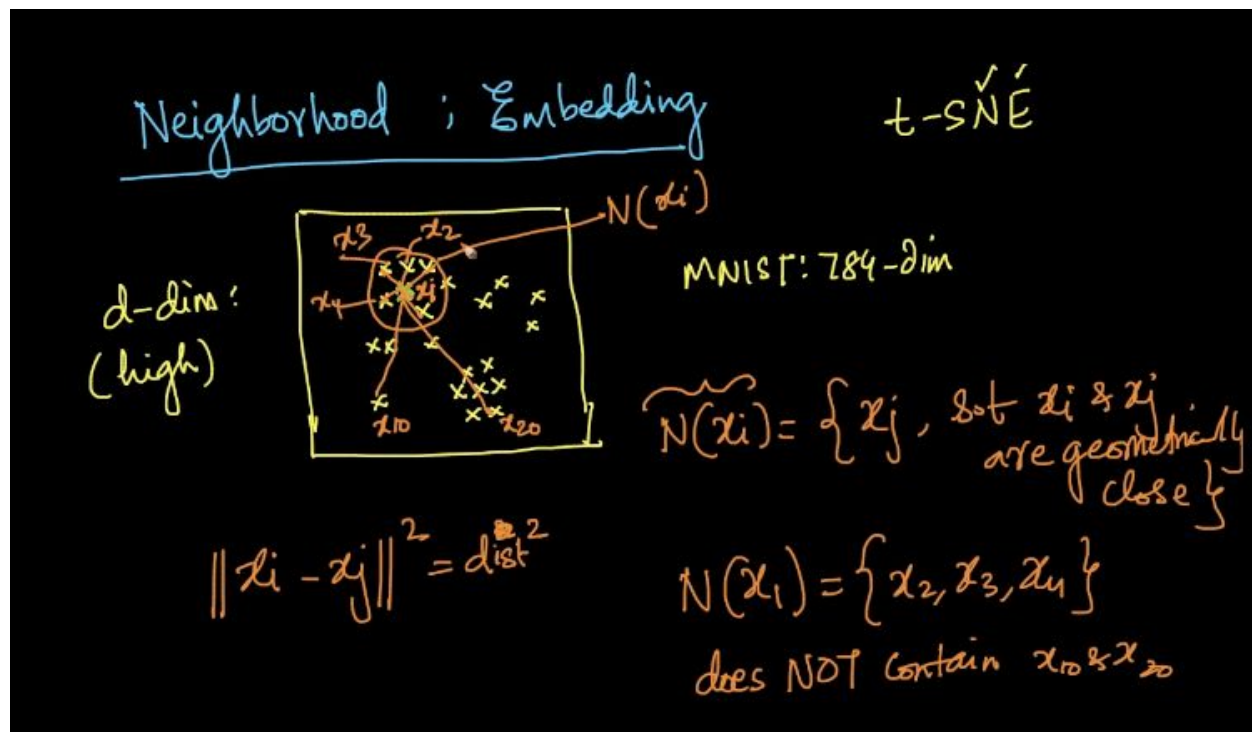 Neighborhood ; Embedding
t-SNE
N(xi)
x3 x2
MNIST: 784-dim
x4 xi
d-dim:
(high)
x10 x20
N(xi) = { xj, s.t xi & xj
are geometrically
close }
||xi - xj||² = dist²
N(x1) = { x2, x3, x4 }
does NOT contain x10 & x20